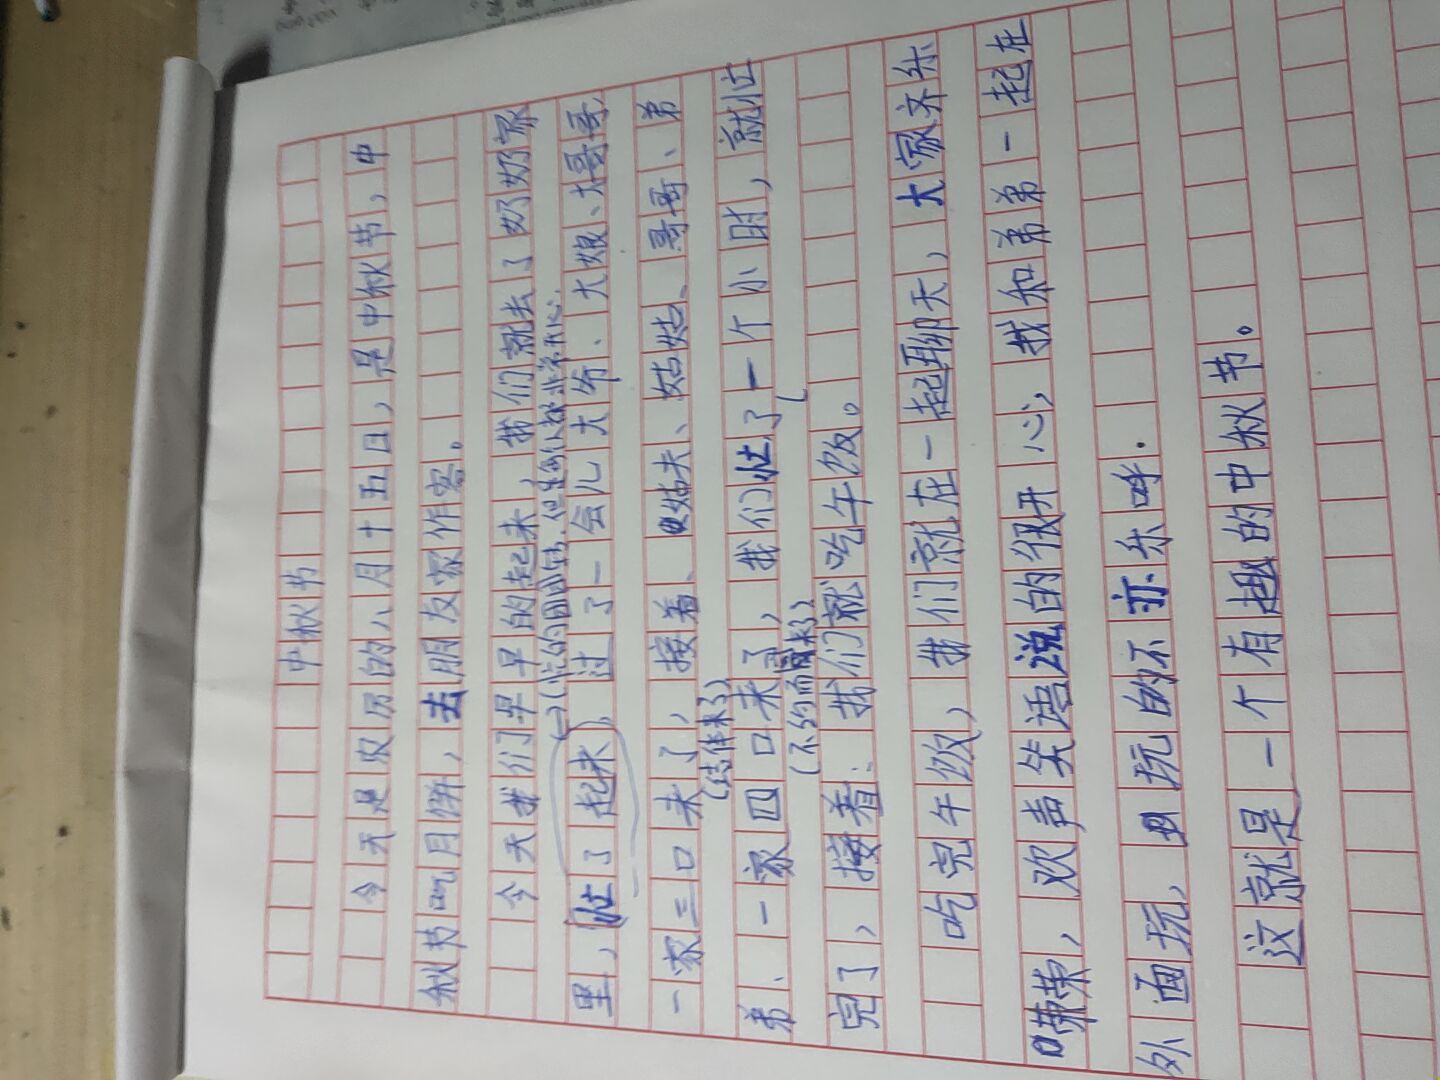 中秋节
今天是农历的八月十五日，是中秋节，中
秋节吃月饼，去朋友家作客。
今天我们早早的起来，我们就去了奶奶家
(忙的团团转，但是每人都非常开心。
里，忙了起来，过了一会儿大爷、大娘、大哥哥
一家三口来了，接着、姑夫、姑姑、哥哥、弟
(结伴来了)
弟、一家四口来了，我们忙了一个小时，就忙
(不约而同来了)
完了，接着：我们就吃午饭。
吃完午饭，我们就在一起聊天，大家齐乐
荣荣，欢声笑语说的很开心，我和弟弟一起在
外面玩，且玩的不亦乐乎.
这就是一个有趣的中秋节。